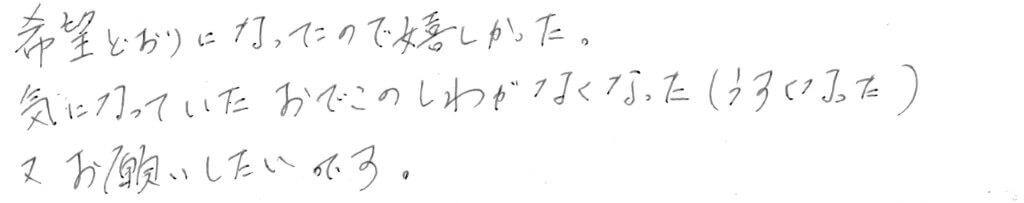 希望どおりになってたので嬉しかった。
気になっていたおでこのしわがなくなった(うすくなった)
又お願いしたいです。